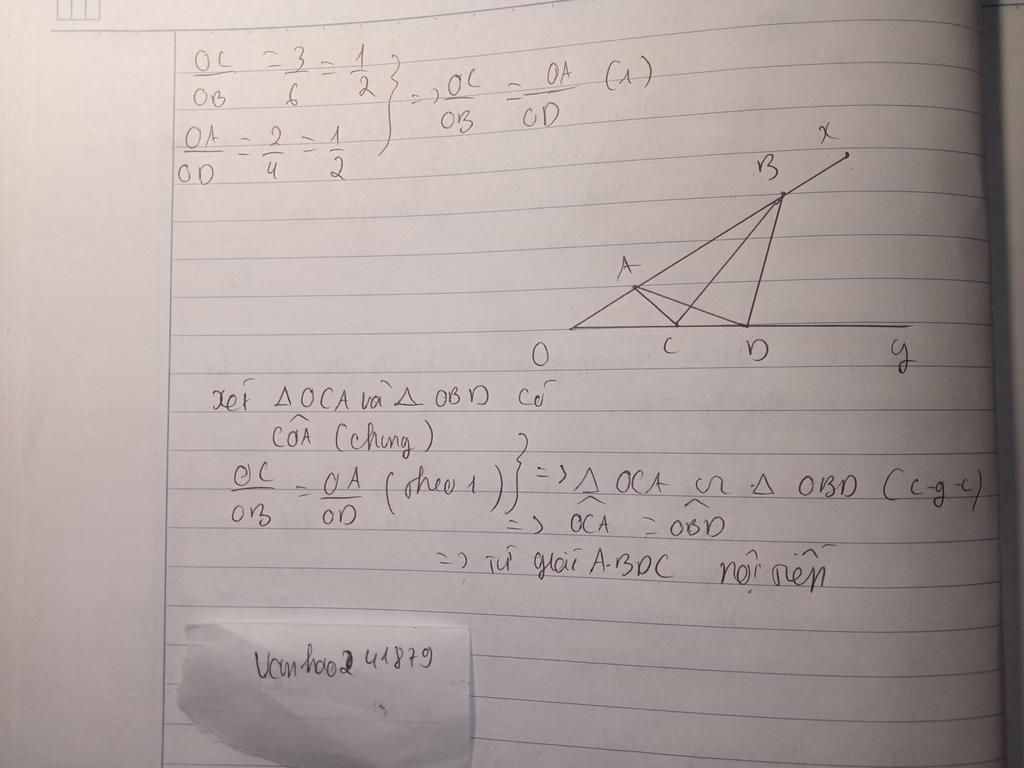 OC/OB = 3/6 = 1/2 } => OC/OB = OA/OD (1)
OA/OD = 2/4 = 1/2
x
B
A
O C D y
xét Δ OCA và Δ OBD có
CÔA (chung)
OC/OB = OA/OD (theo 1) } => Δ OCA ∽ Δ OBD (c-g-c)
=> OCA = OBD
=> Tứ giác ABDC nội tiếp
Vanhao2 41879